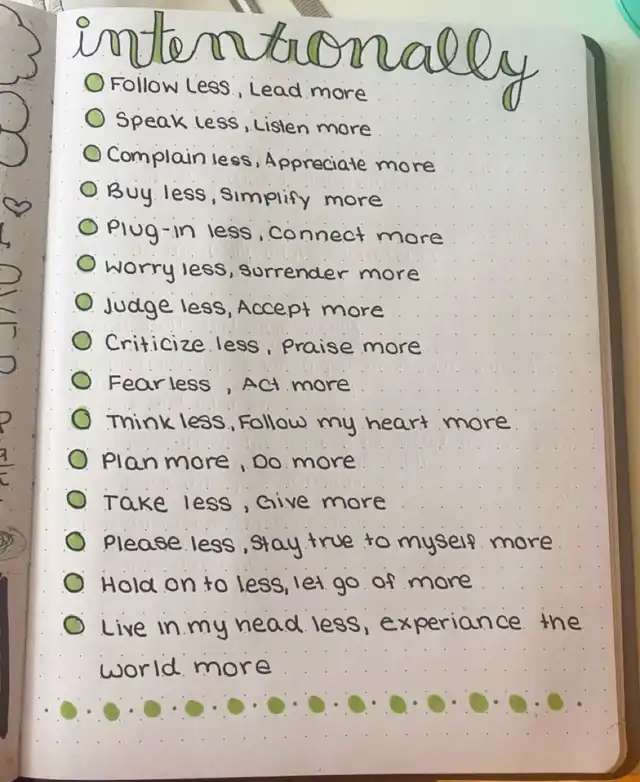 intentionally
Follow Less, Lead more
Speak less, Listen more
Complain less, Appreciate more
Buy less, Simplify more
Plug-in less, connect more
Worry less, surrender more
Judge less, Accept more
Criticize less, Praise more
Fear less, Act more
Think less, Follow my heart more
Plan more, Do more
Take less, Give more
Please less, Stay true to myself more
Hold on to less, let go of more
Live in my head less, experiance the
world more